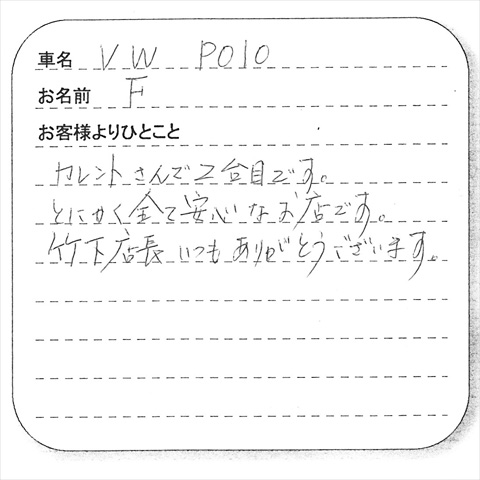 車名 VW POLO
お名前 F
お客様よりひとこと
カレントさんで2台目です。
とにかく全て安心なお店です。
竹下店長いつもありがとうございます。